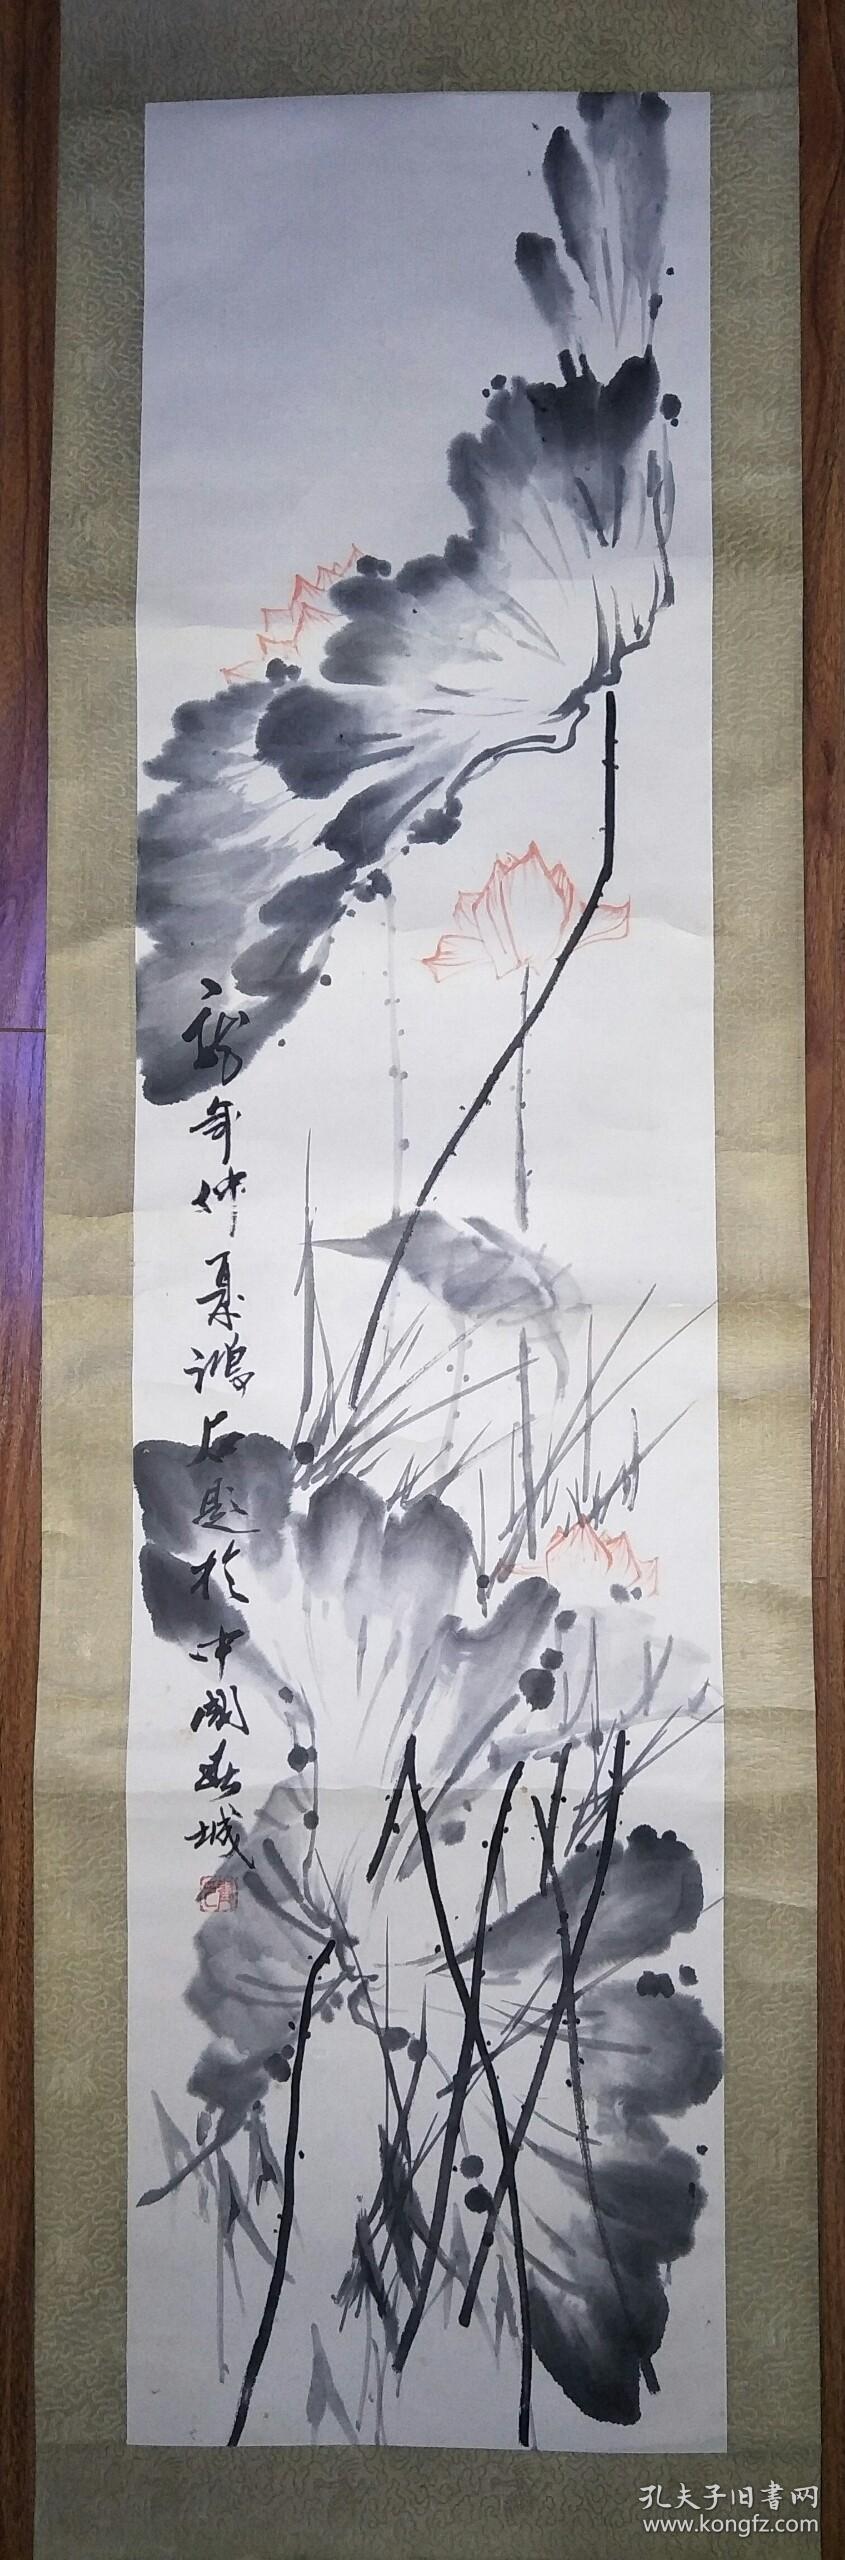 龙年仲夏鸿石题於中国春城
孔夫子旧書网
www.kongfz.com